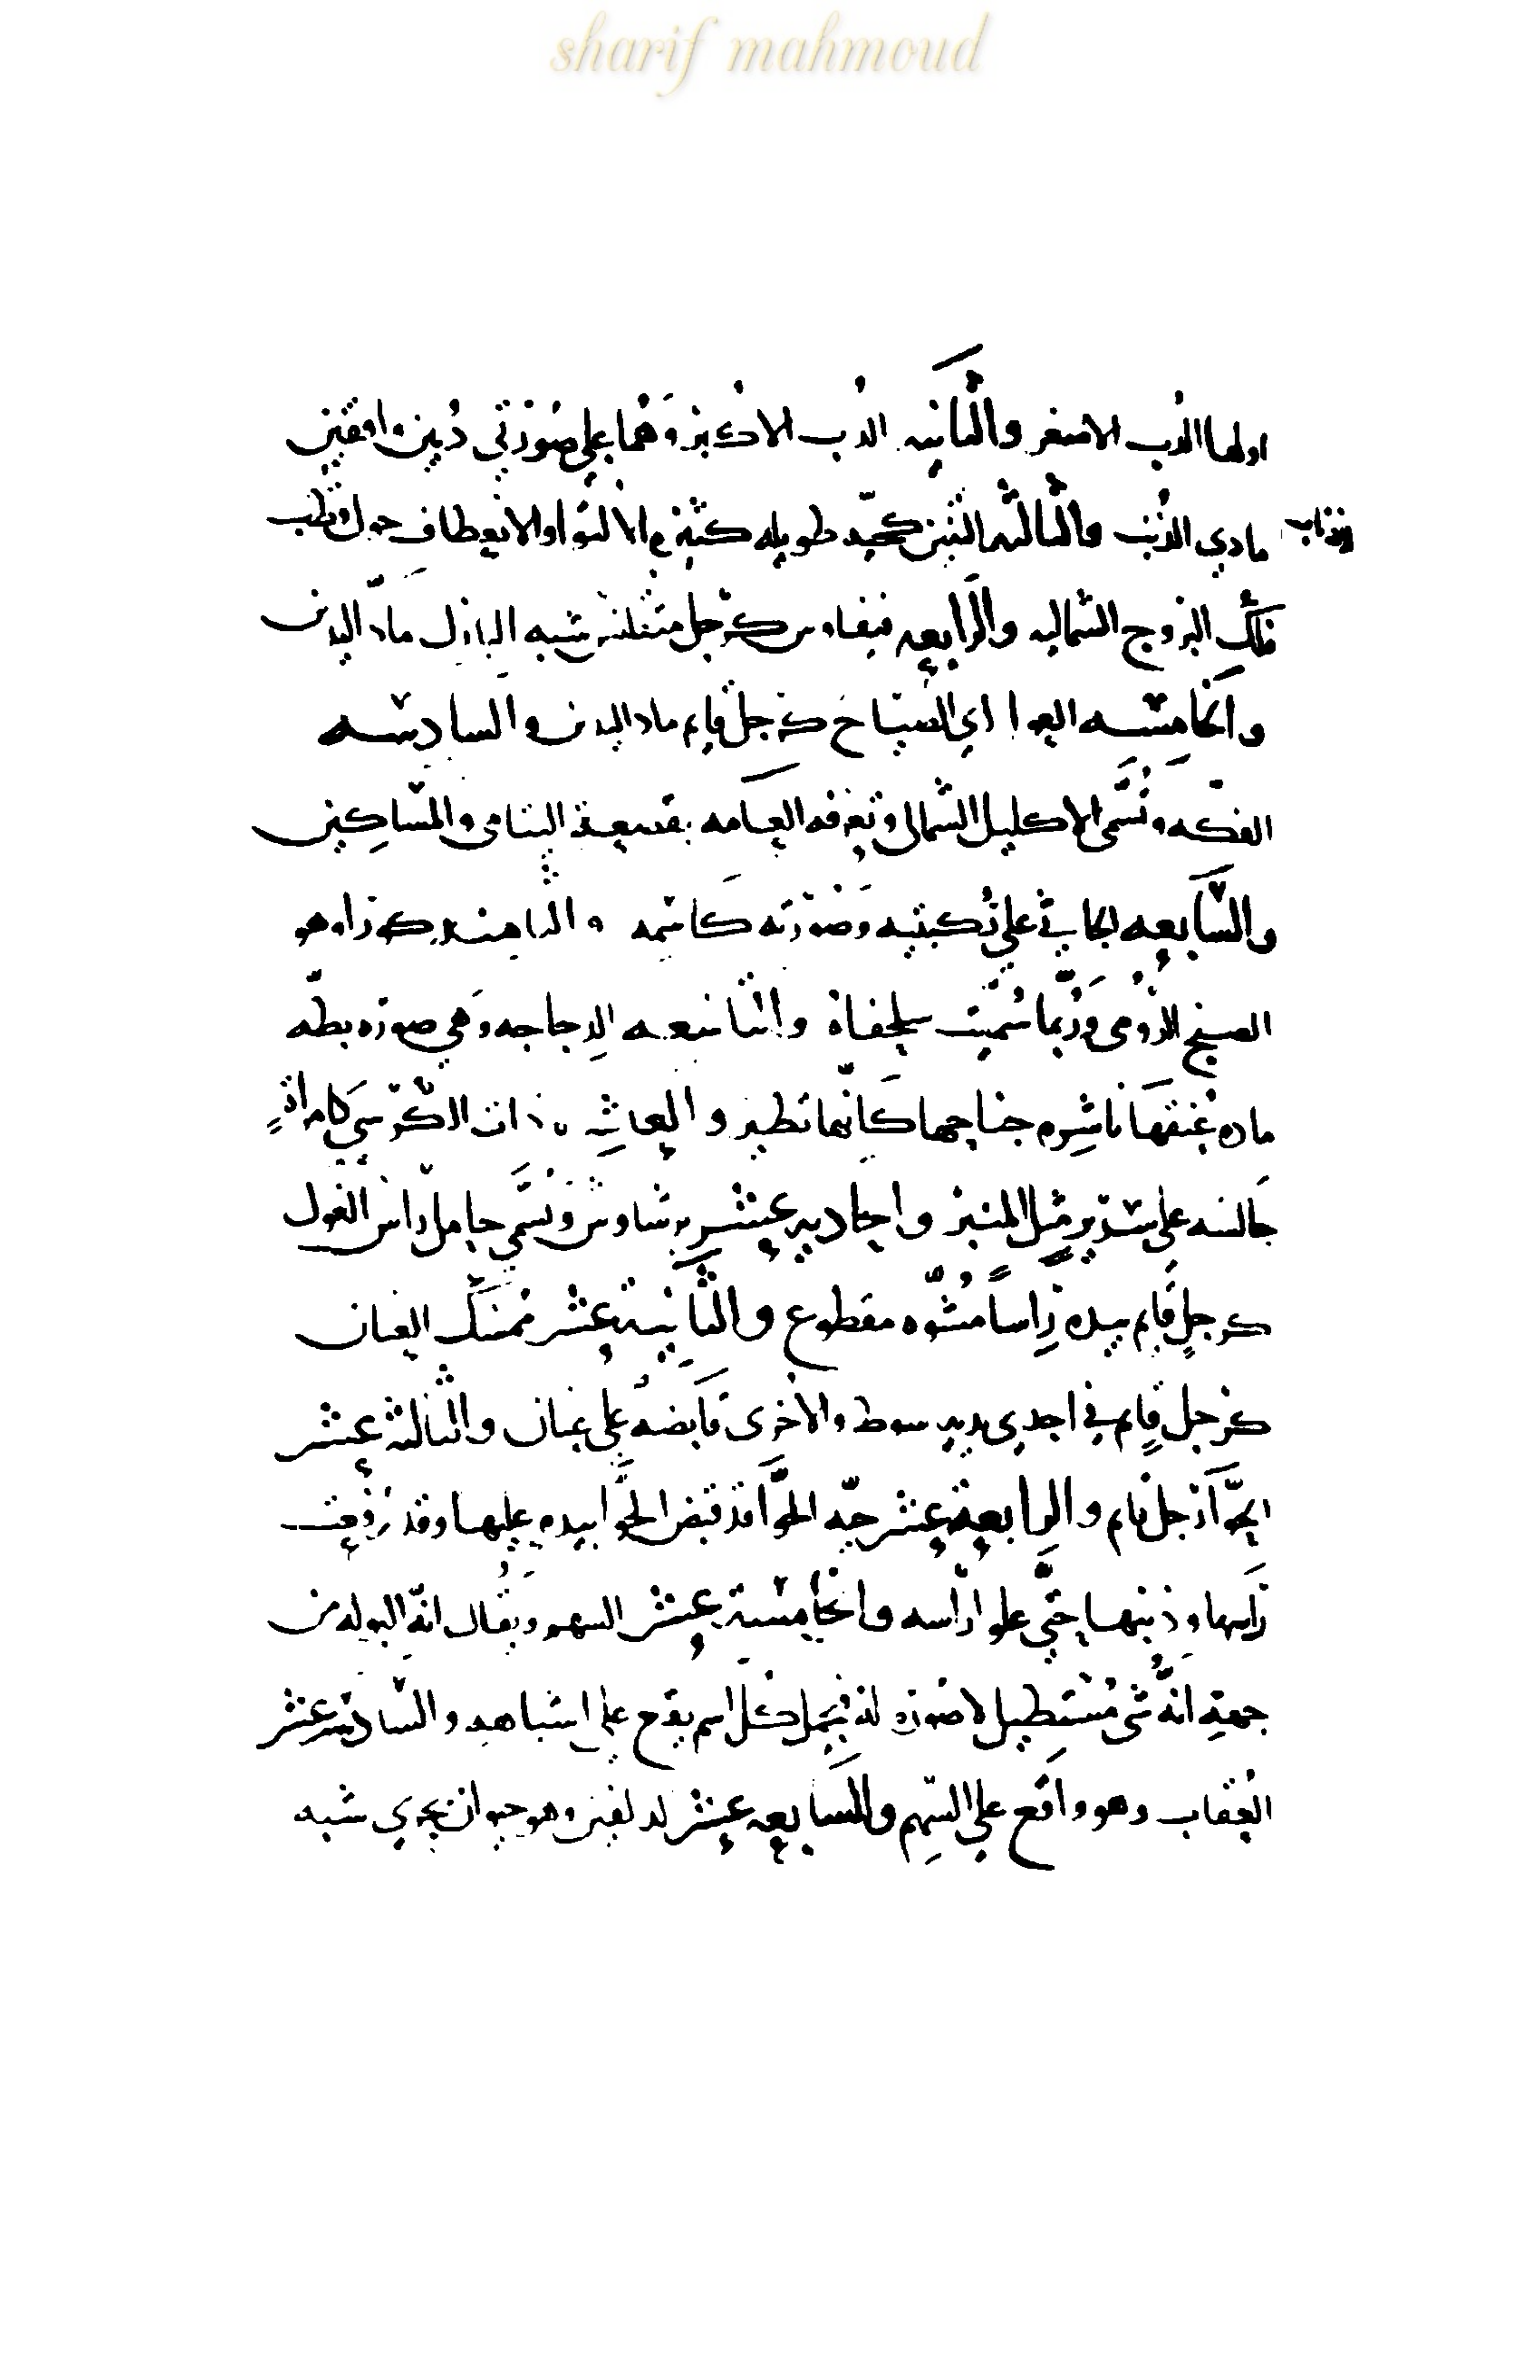 sharif mahmoud
اولها الدب الاصغر والثانيه الدب الاكبر وهما على صورتي دبين واقفين
مادي الذنب والثالثه التنين كحيه طويله كثيره الالتوا والانعطاف حول قطب
فلك البروج الشماليه والرابعه قيفاوس كرجل متقلنس شبه البازل ماد اليدين
والخامسه العوا اي الصياح كرجل قايم ماد اليدين والسادسه
الفكه وتسمى الاكليل الشمالى وتعرفه العامه بقصعة اليتامى والمساكين
والسابعه الجاثي على ركبتيه وصورته كاسمه والثامنه لوزا وهو
الصنج الرومى وربما سميت سلحفاة والتاسعه الدجاجه وهي صوره بطه
ماده عنقها ناشره جناحيها كانها تطير والعاشره ذات الكرسي كامراة
جالسه على سرير مثل المنبر والحاديه عشر برشاوش وتسمى حامل راس الغول
كرجل قايم بيده راسا مشوه مقطوع والثانية عشر ممسك العنان
كرجل قايم في احدى يديه سوط والاخرى قابضه على عنان والثالثه عشر
الحوا رجل قايم والرابعة عشر حيه الحوا قد قبض الحوا بيده عليها وقد رفعت
راسها وذنبها حتى علوا راسه والخامسة عشر السهم ويقال انه النول من
جهة انه شى مستطيل لا صوره له فيحمل كل اسم يقع على اشباهه والسادسه عشر
العقاب وهو واقع على السهم والسابعه عشر الدلفين وهو حيوان بحري شبه